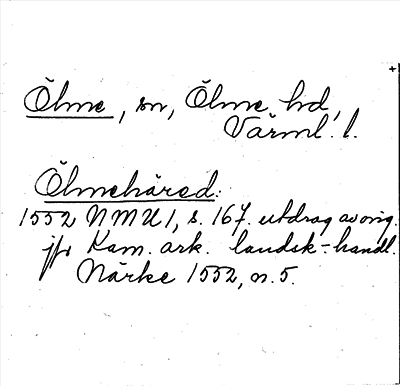 Ölme, sn, Ölme hd,
Värml. l.
Ölmehäred:
1552 NMU 1, s. 167. utdrag av orig.
jfr Kam. ark. landsk-handl.
Närke 1552, n. 5.